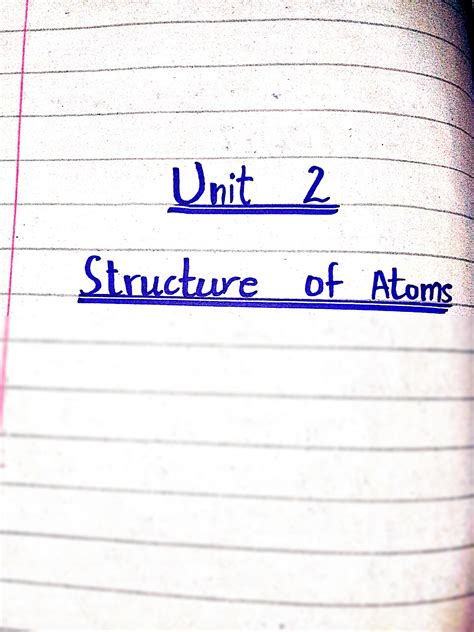 Unit 2
Structure of Atoms